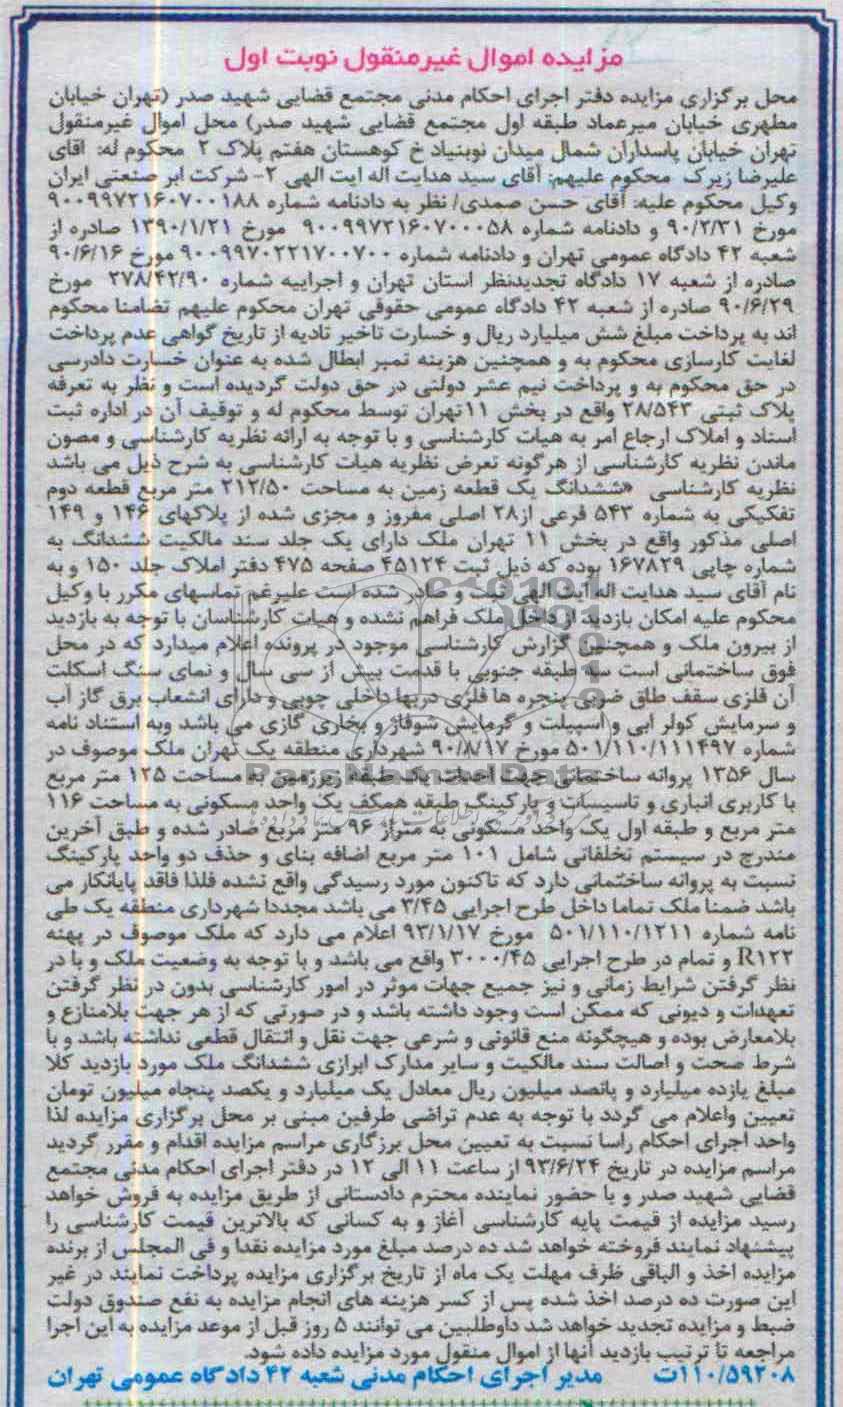 مزایده اموال غیرمنقول نوبت اول
محل برگزاری مزایده دفتر اجرای احکام مدنی مجتمع قضایی شهید صدر (تهران خیابان
مطهری خیابان میرعماد طبقه اول مجتمع قضایی شهید صدر) محل اموال غیرمنقول
تهران خیابان پاسداران شمال میدان نوبنیاد خ کوهستان هفتم پلاک ۲ محکوم له: اقای
علیرضا زیرک محکوم علیهم: آقای سید هدایت اله ایت الهی ۲- شرکت ابر صنعتی ایران
وکیل محکوم علیه: آقای حسن صمدی/ نظر به دادنامه شماره ۹۰۰۹۹۷۲۱۶۰۷۰۰۱۸۸
مورخ ۹۰/۲/۳۱ و دادنامه شماره ۹۰۰۹۹۷۲۱۶۰۷۰۰۰۵۸ مورخ ۱۳۹۰/۱/۲۱ صادره از
شعبه ۴۲ دادگاه عمومی تهران و دادنامه شماره ۹۰۰۹۹۷۰۲۲۱۷۰۰۷۰۰ مورخ ۹۰/۶/۱۶
صادره از شعبه ۱۷ دادگاه تجدیدنظر استان تهران و اجراییه شماره ۲۷۸/۴۲/۹۰ مورخ
۹۰/۶/۲۹ صادره از شعبه ۴۲ دادگاه عمومی حقوقی تهران محکوم علیهم تضامنا محکوم
اند به پرداخت مبلغ شش میلیارد ریال و خسارت تاخیر تادیه از تاریخ گواهی عدم پرداخت
لغایت کارسازی محکوم به و همچنین هزینه تمبر ابطال شده به عنوان خسارت دادرسی
در حق محکوم به و پرداخت نیم عشر دولتی در حق دولت گردیده است و نظر به تعرفه
پلاک ثبتی ۲۸/۵۴۳ واقع در بخش ۱۱تهران توسط محکوم له و توقیف آن در اداره ثبت
اسناد و املاک ارجاع امر به هیات کارشناسی و با توجه به ارائه نظریه کارشناسی و مصون
ماندن نظریه کارشناسی از هرگونه تعرض نظریه هیات کارشناسی به شرح ذیل می باشد
نظریه کارشناسی «ششدانگ یک قطعه زمین به مساحت ۲۱۲/۵۰ متر مربع قطعه دوم
تفکیکی به شماره ۵۴۳ فرعی از۲۸ اصلی مفروز و مجزی شده از پلاکهای ۱۴۶ و ۱۴۹
اصلی مذکور واقع در بخش ۱۱ تهران ملک دارای یک جلد سند مالکیت ششدانگ به
شماره چاپی ۱۶۷۸۲۹ بوده که ذیل ثبت ۴۵۱۲۴ صفحه ۴۷۵ دفتر املاک جلد ۱۵۰ و به
نام آقای سید هدایت اله آیت الهی ثبت و صادر شده است علیرغم تماسهای مکرر با وکیل
محکوم علیه امکان بازدید از داخل ملک فراهم نشده و هیات کارشناسان با توجه به بازدید
از بیرون ملک و همچنین گزارش کارشناسی موجود در پرونده اعلام میدارد که در محل
فوق ساختمانی است سه طبقه جنوبی با قدمت بیش از سی سال و نمای سنگ اسکلت
آن فلزی سقف طاق ضربی پنجره ها فلزی دربها داخلی چوبی و دارای انشعاب برق گاز آب
و سرمایش کولر ابی و اسپیلت و گرمایش شوفاژ و بخاری گازی می باشد وبه استناد نامه
شماره ۵۰۱/۱۱۰/۱۱۱۴۹۷ مورخ ۹۰/۸/۱۷ شهرداری منطقه یک تهران ملک موصوف در
سال ۱۳۵۶ پروانه ساختمانی جهت احداث یک طبقه زیرزمین به مساحت ۱۲۵ متر مربع
با کاربری انباری و تاسیسات و پارکینگ طبقه همکف یک واحد مسکونی به مساحت ۱۱۶
متر مربع و طبقه اول یک واحد مسکونی به متراژ ۹۶ متر مربع صادر شده و طبق آخرین
مندرج در سیستم تخلفاتی شامل ۱۰۱ متر مربع اضافه بنای و حذف دو واحد پارکینگ
نسبت به پروانه ساختمانی دارد که تاکنون مورد رسیدگی واقع نشده فلذا فاقد پایانکار می
باشد ضمنا ملک تماما داخل طرح اجرایی ۳/۴۵ می باشد مجددا شهرداری منطقه یک طی
نامه شماره ۵۰۱/۱۱۰/۱۲۱۱ مورخ ۹۳/۱/۱۷ اعلام می دارد که ملک موصوف در پهنه
R۱۲۲ و تمام در طرح اجرایی ۳۰۰۰/۴۵ واقع می باشد و با توجه به وضعیت ملک و با در
نظر گرفتن شرایط زمانی و نیز جمیع جهات موثر در امور کارشناسی بدون در نظر گرفتن
تعهدات و دیونی که ممکن است وجود داشته باشد و در صورتی که از هر جهت بلامنازع و
بلامعارض بوده و هیچگونه منع قانونی و شرعی جهت نقل و انتقال قطعی نداشته باشد و با
شرط صحت و اصالت سند مالکیت و سایر مدارک ابرازی ششدانگ ملک مورد بازدید کلا
مبلغ یازده میلیارد و پانصد میلیون ریال معادل یک میلیارد و یکصد پنجاه میلیون تومان
تعیین واعلام می گردد با توجه به عدم تراضی طرفین مبنی بر محل برگزاری مزایده لذا
واحد اجرای احکام راسا نسبت به تعیین محل برزگاری مراسم مزایده اقدام و مقرر گردید
مراسم مزایده در تاریخ ۹۳/۶/۲۴ از ساعت ۱۱ الی ۱۲ در دفتر اجرای احکام مدنی مجتمع
قضایی شهید صدر و با حضور نماینده محترم دادستانی از طریق مزایده به فروش خواهد
رسید مزایده از قیمت پایه کارشناسی آغاز و به کسانی که بالاترین قیمت کارشناسی را
پیشنهاد نمایند فروخته خواهد شد ده درصد مبلغ مورد مزایده نقدا و فی المجلس از برنده
مزایده اخذ و الباقی ظرف مهلت یک ماه از تاریخ برگزاری مزایده پرداخت نمایند در غیر
این صورت ده درصد اخذ شده پس از کسر هزینه های انجام مزایده به نفع صندوق دولت
ضبط و مزایده تجدید خواهد شد داوطلبین می توانند ۵ روز قبل از موعد مزایده به این اجرا
مراجعه تا ترتیب بازدید آنها از اموال منقول مورد مزایده داده شود.
۱۱۰/۵۹۲۰۸ت مدیر اجرای احکام مدنی شعبه ۴۲ دادگاه عمومی تهران
ParsNamadData